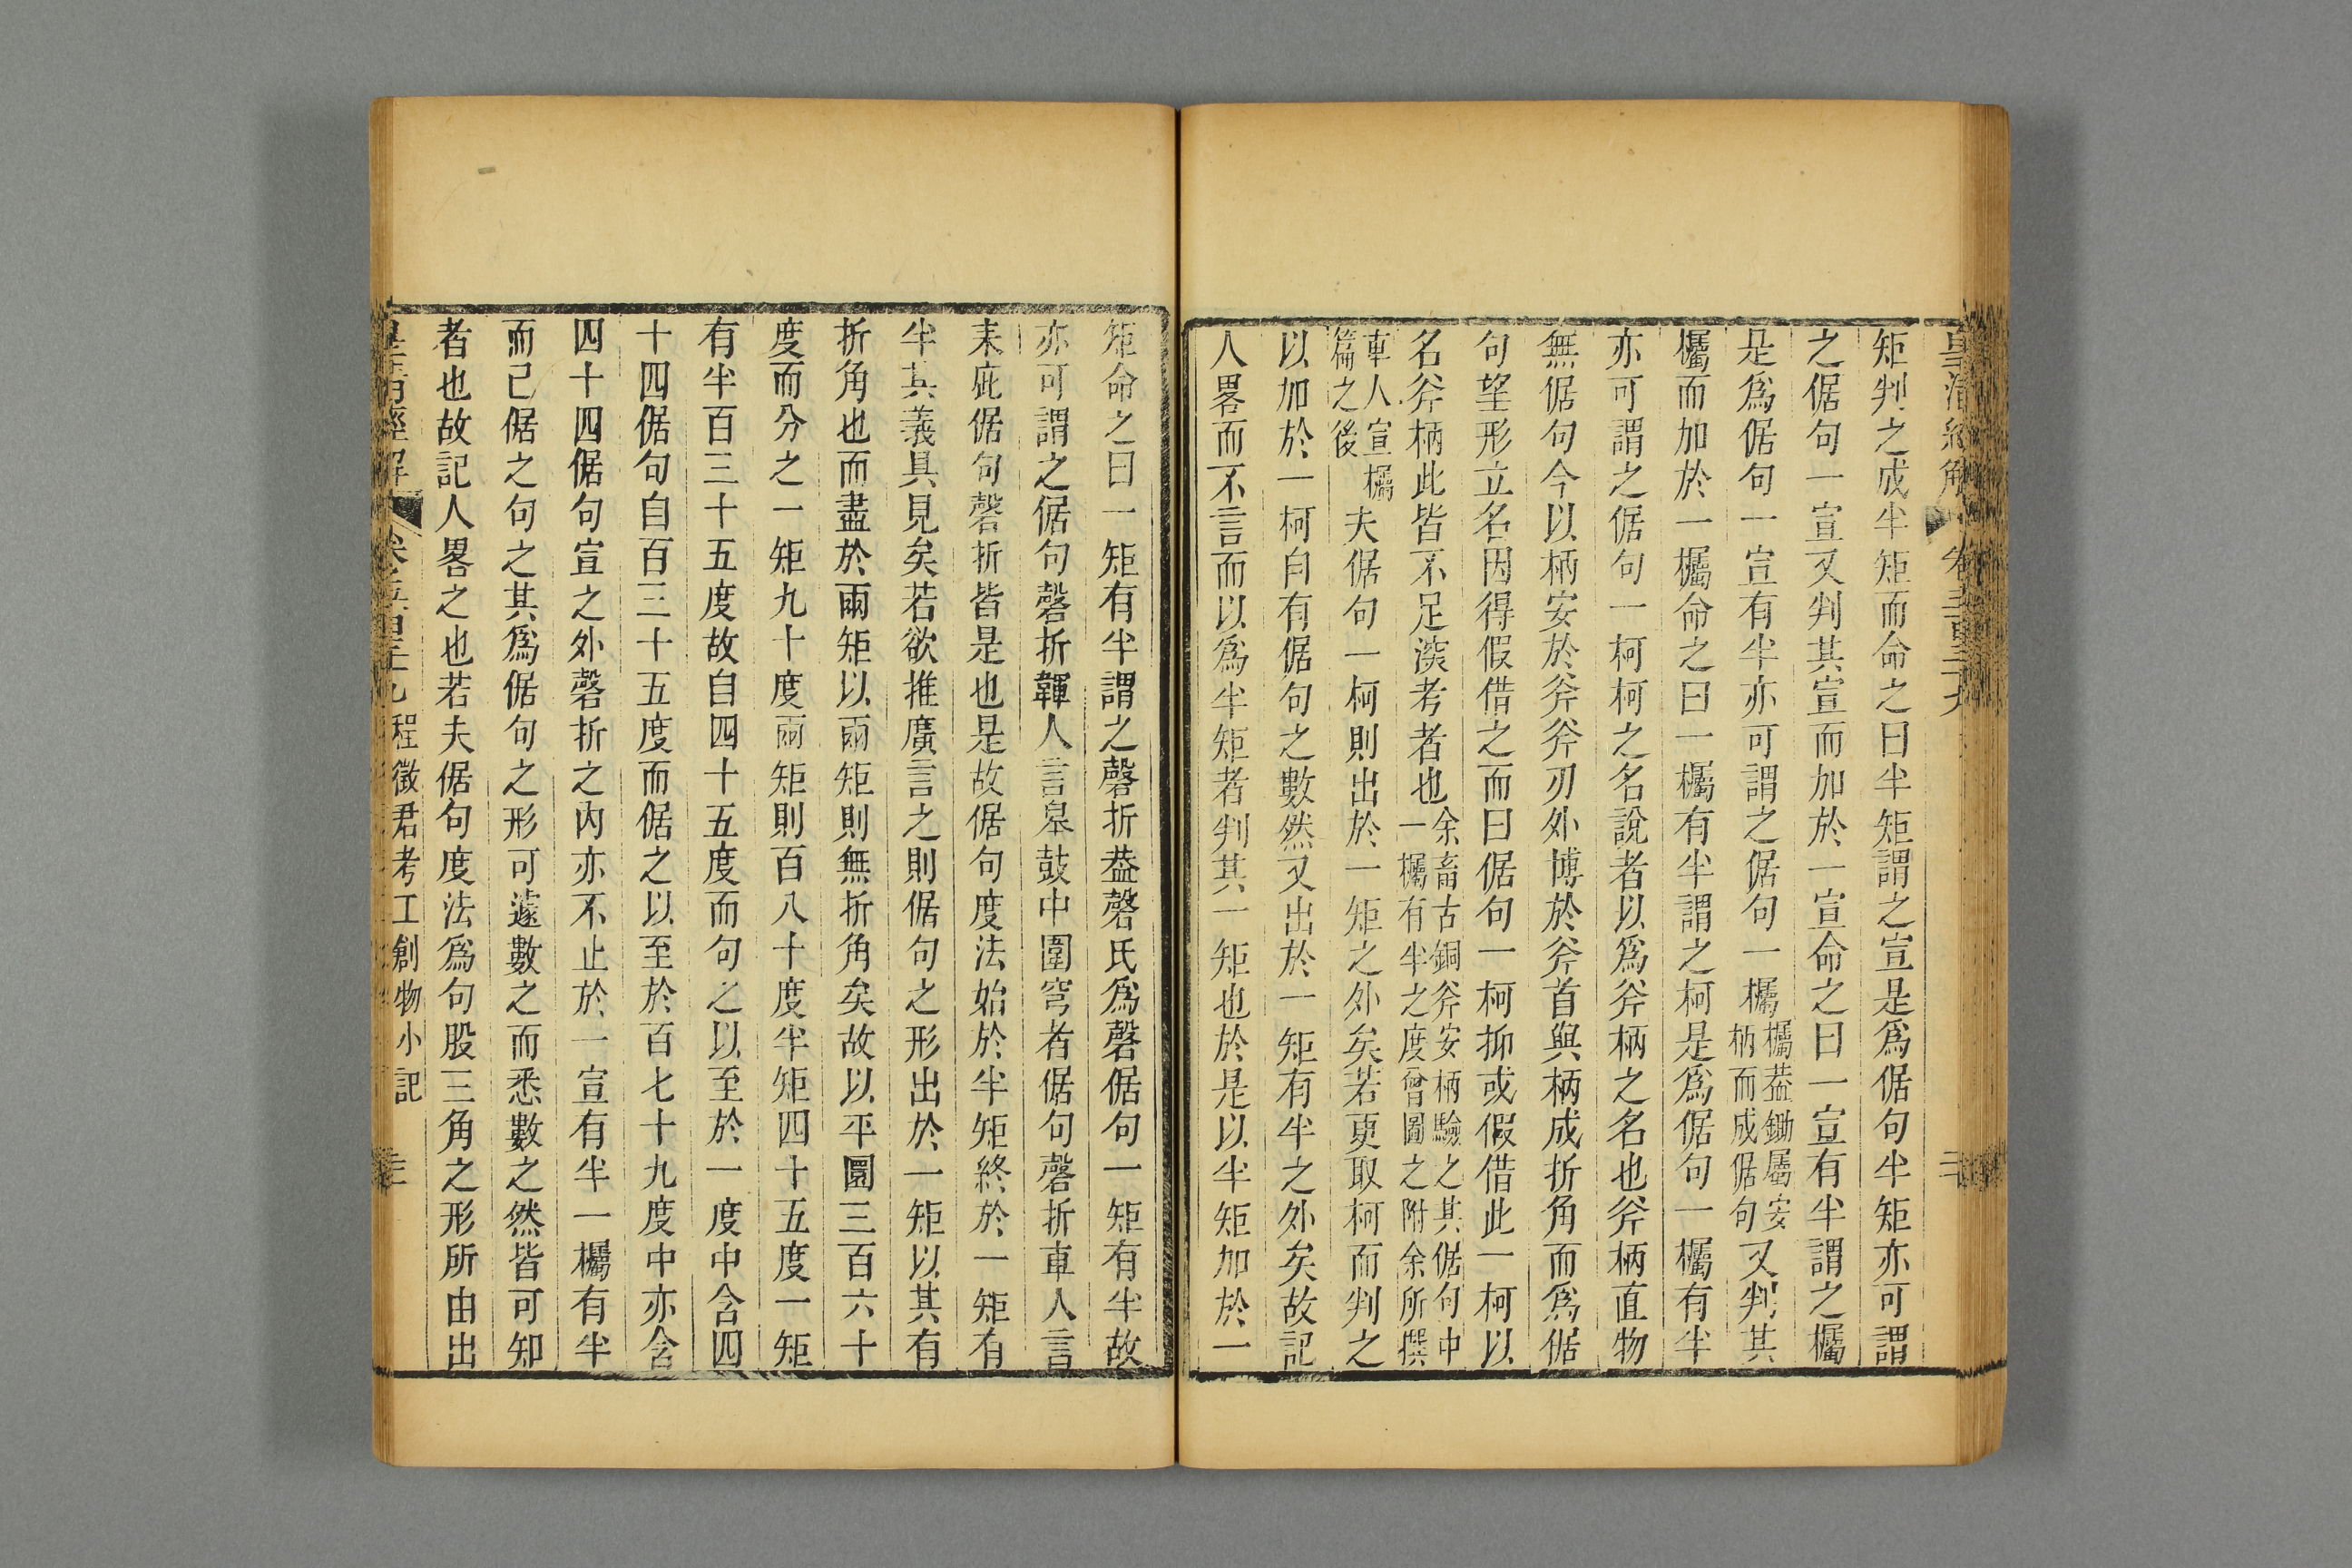 矩判之成半矩而命之曰半矩謂之宣是爲倨句半矩亦可謂
之倨句一宣又判其宣而加於一宣命之曰一宣有半謂之欘
是爲倨句一宣有半亦可謂之倨句一欘欘葢鋤屬安柄而成倨句又判其
欘而加於一欘命之曰一欘有半謂之柯是爲倨句一欘有半
亦可謂之倨句一柯柯之名說者以爲斧柄之名也斧柄直物
無倨句今以柄安於斧斧刃外博於斧首與柄成折角而爲倨
句望形立名因得假借之而曰倨句一柯抑或假借此一柯以
名斧柄此皆不足深考者也余畜古銅斧安柄驗之其倨句中一欘有半之度曾圖之附余所撰
車人宣欘篇之後夫倨句一柯則出於一矩之外矣若更取柯而判之
以加於一柯自有倨句之數然又出於一矩有半之外矣故記
人畧而不言而以爲半矩者判其一矩也於是以半矩加於一
矩命之曰一矩有半謂之磬折葢磬氏爲磬倨句一矩有半故
亦可謂之倨句磬折韗人言皋鼓中圍穹者倨句磬折車人言
耒庛倨句磬折皆是也是故倨句度法始於半矩終於一矩有
半其義具見矣若欲推廣言之則倨句之形出於一矩以其有
折角也而盡於兩矩以兩矩則無折角矣故以平圜三百六十
度而分之一矩九十度兩矩則百八十度半矩四十五度一矩
有半百三十五度故自四十五度而句之以至於一度中含四
十四倨句自百三十五度而倨之以至於百七十九度中亦含
四十四倨句宣之外磬折之內亦不止於一宣有半一欘有半
而已倨之句之其爲倨句之形可遽數之而悉數之然皆可知
者也故記人畧之也若夫倨句度法爲句股三角之形所由出
程徵君考工創物小記